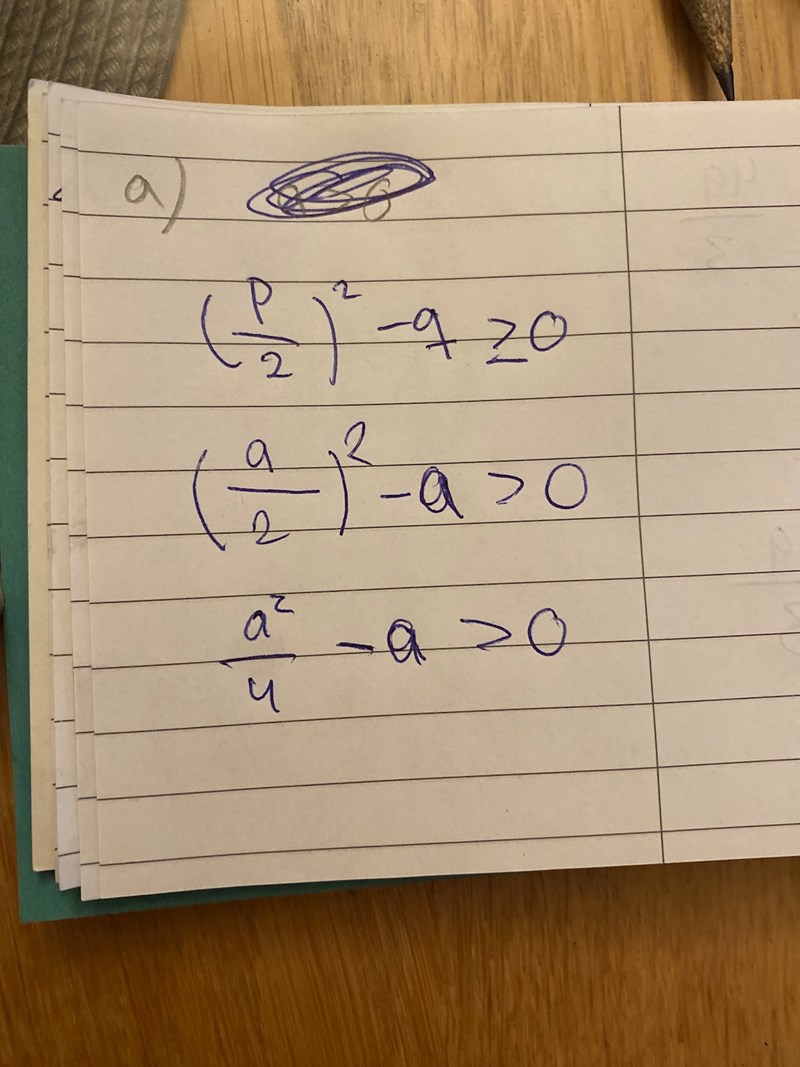 a)
(p/2)² - q ≥ 0
(a/2)² - a > 0
a²/4 - a > 0